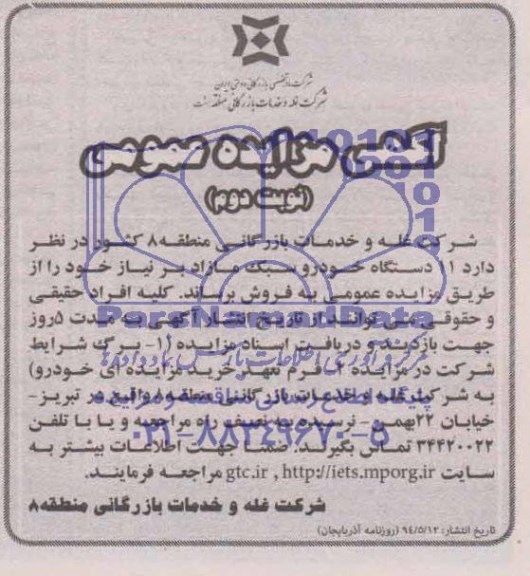 شرکت مادر تخصصی بازرگانی دولتی ایران
شرکت غله و خدمات بازرگانی منطقه هشت
آگهی مزایده عمومی
(نوبت دوم)
شرکت غله و خدمات بازرگانی منطقه ۸ کشور در نظر
دارد ۱۱ دستگاه خودرو سبک مازاد بر نیاز خود را از
طریق مزایده عمومی به فروش برساند. کلیه افراد حقیقی
و حقوقی می توانند از تاریخ انتشار آگهی به مدت ۵ روز
جهت بازدید و دریافت اسناد مزایده (۱- برگ شرایط
شرکت در مزایده ۲- فرم تعهد خرید مزایده ای خودرو)
به شرکت غله و خدمات بازرگانی منطقه ۸ واقع در تبریز-
خیابان ۲۲بهمن- نرسیده به نصف راه مراجعه و یا با تلفن
۳۴۴۲۰۰۲۲ تماس بگیرند. ضمنا جهت اطلاعات بیشتر به
سایت gtc.ir , http://iets.mporg.ir مراجعه فرمایند.
شرکت غله و خدمات بازرگانی منطقه ۸
تاریخ انتشار: ۹۴/۵/۱۲ (روزنامه آذربایجان)
ParsNamadData
پایگاه اطلاع رسانی مناقصه و مزایده
۰۲۱-۸۸۳۴۹۶۷۰-۵